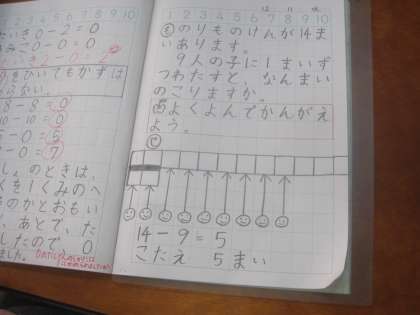 1 2 3 4 5 6 7 8 9 10
もののりものけんが14ま
いあります。
9人の子に1まいず
つわたすと、なんまい
のこりますか。
よくよんでかんがえ
よう。
14-9=5
こたえ 5まい
5 6 7 8 9 10
0-2=0
0-0=0
2-0=2
をひいてもかずは
らない。
8-8=0
10-10=0
5-0=5
7-0=7
のときは、
を1くみのへ
ものかとおもい
、あとで、た
したので 0
ました。